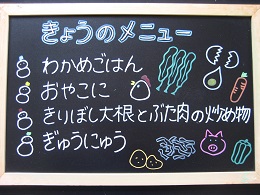 きょうのメニュー
わかめごはん
おやこに
きりぼし大根とぶた肉の炒め物
ぎゅうにゅう